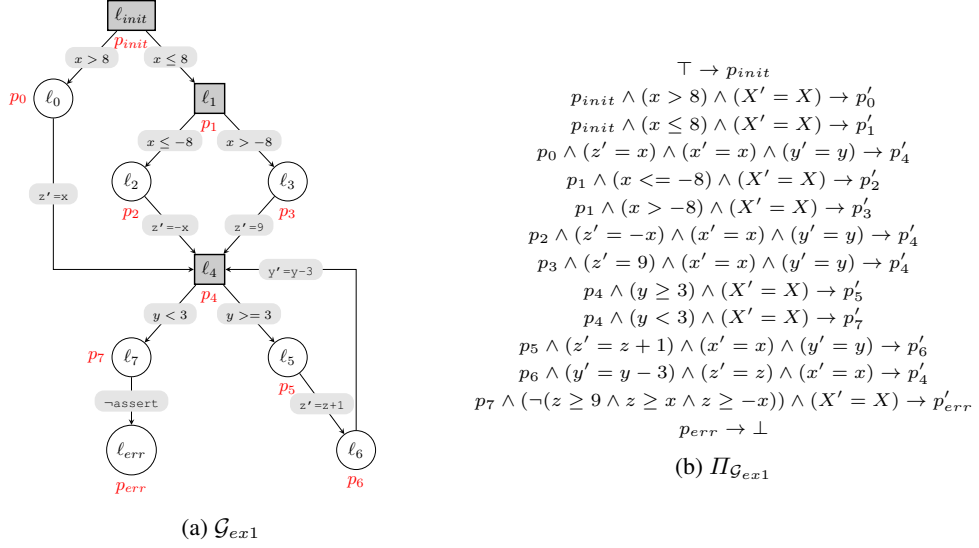 ℓ_init
p_init
x > 8
x ≤ 8
p_0
ℓ_0
ℓ_1
p_1
x ≤ −8
x > −8
ℓ_2
ℓ_3
p_2
p_3
z'=x
z'=-x
z'=9
ℓ_4
y'=y-3
p_4
y < 3
y >= 3
p_7
ℓ_7
ℓ_5
p_5
¬assert
z'=z+1
ℓ_err
ℓ_6
p_err
p_6
(a) 𝒢_ex1
⊤ → p_init
p_init ∧ (x > 8) ∧ (X' = X) → p'_0
p_init ∧ (x ≤ 8) ∧ (X' = X) → p'_1
p_0 ∧ (z' = x) ∧ (x' = x) ∧ (y' = y) → p'_4
p_1 ∧ (x <= −8) ∧ (X' = X) → p'_2
p_1 ∧ (x > −8) ∧ (X' = X) → p'_3
p_2 ∧ (z' = −x) ∧ (x' = x) ∧ (y' = y) → p'_4
p_3 ∧ (z' = 9) ∧ (x' = x) ∧ (y' = y) → p'_4
p_4 ∧ (y ≥ 3) ∧ (X' = X) → p'_5
p_4 ∧ (y < 3) ∧ (X' = X) → p'_7
p_5 ∧ (z' = z + 1) ∧ (x' = x) ∧ (y' = y) → p'_6
p_6 ∧ (y' = y − 3) ∧ (z' = z) ∧ (x' = x) → p'_4
p_7 ∧ (¬(z ≥ 9 ∧ z ≥ x ∧ z ≥ −x)) ∧ (X' = X) → p'_err
p_err → ⊥
(b) Π_𝒢_ex1